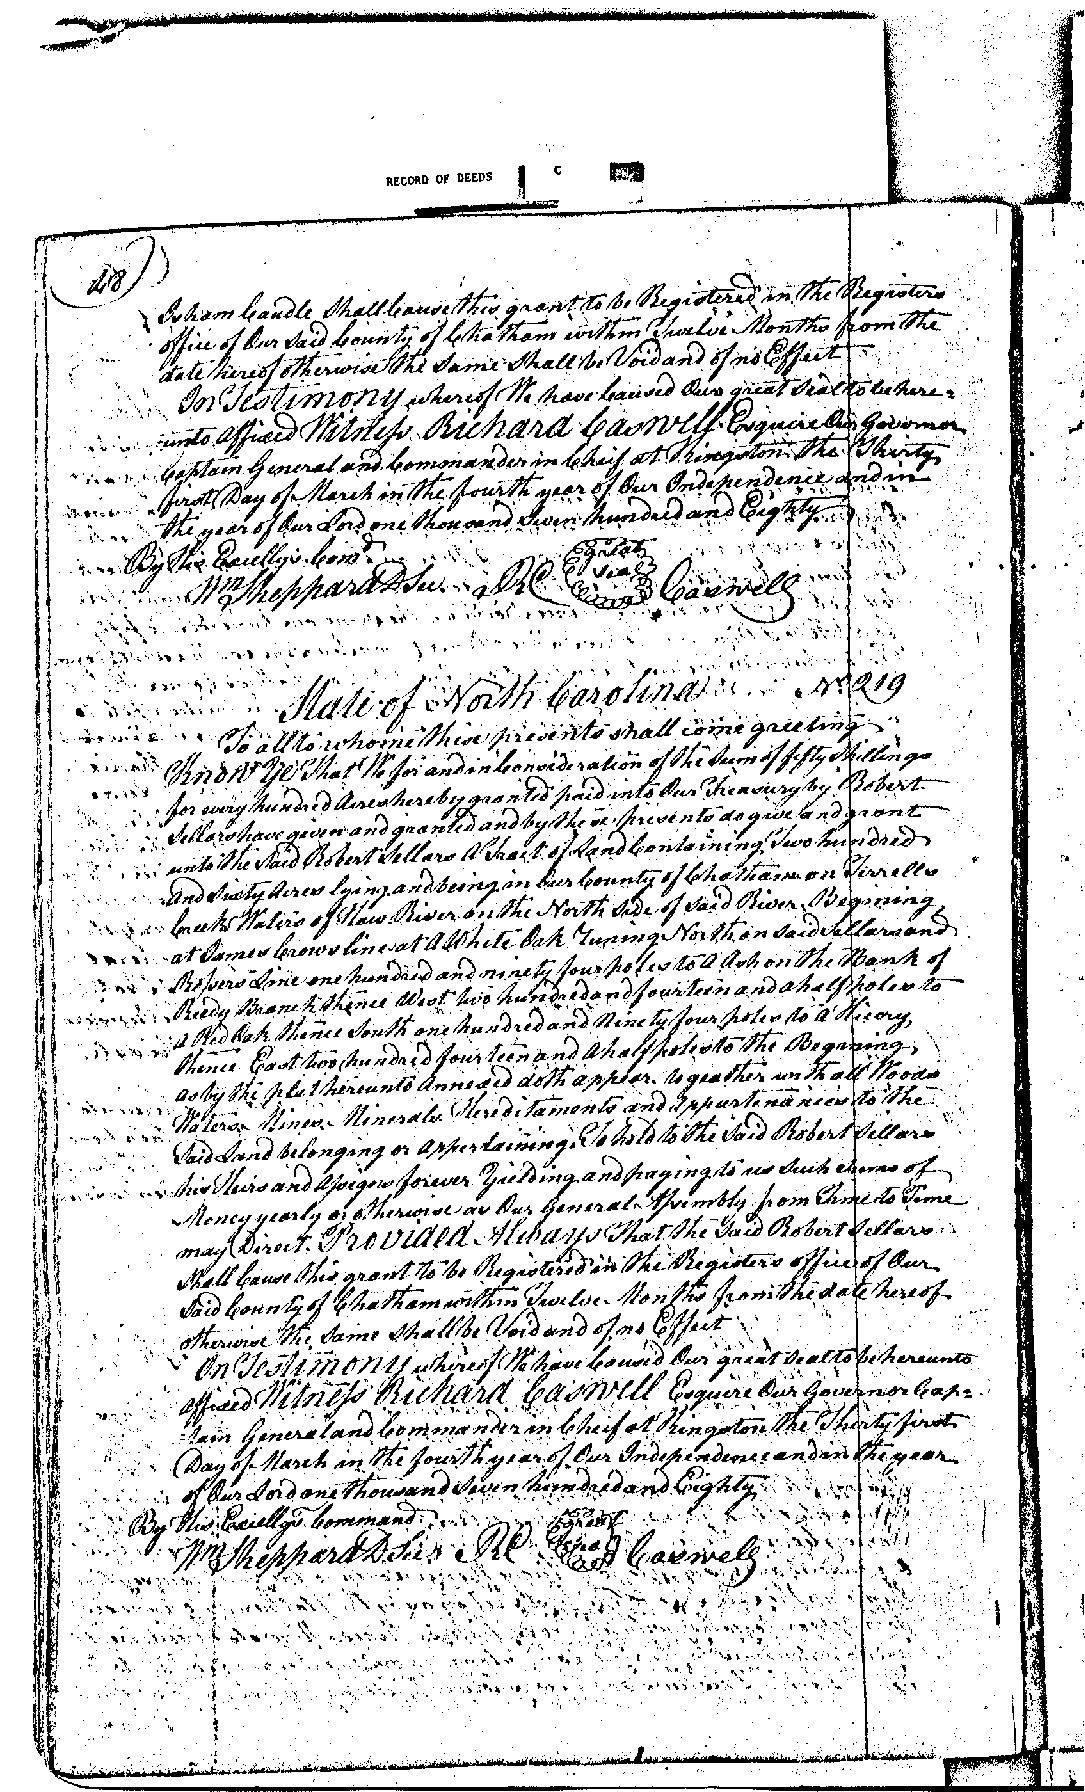 RECORD OF DEEDS C
48
Isham Caudle Shall Cause this grant to be Registered in the Registers
office of Our Said County of Chatham within Twelve Months from the
date hereof otherwise the same shall be Void and of no Effect
In Testimony whereof We have Caused Our great Seal to be here=
unto affixed Witness Richard Caswell Esquire Our Governor
Captain General and Commander in Cheif at Kingston the Thirty
first Day of March in the fourth year of Our Independence and in
the year of Our Lord one thousand Seven hundred and Eighty
By His Excellys Comd
Wm Sheppard D Sec. R C great seal Caswell
State of North Carolina No 219
To all to whome these presents shall come greeting
Know Ye That We for and in Consideration of the Sum of fifty Shillings
for every hundred Acres hereby granted paid into Our Treasury by Robert
Sellars have given and granted and by these presents do give and grant
unto the Said Robert Sellars A Tract of Land Containing Two hundred
and Sixty Acres lying and being in Our County of Chatham on Terrells
Creek Waters of Haw River on the North Side of said River Begining
at James Crows line at A White Oak Runing North on said Sellars and
Line one hundred and ninety four poles to A Ash on the Bank of
Reedy Branch thence West two hundred and fourteen and a half poles to
a Red Oak thence South one hundred and Ninety four poles to A Hicory
thence East two hundred fourteen and A half poles to the Begining
as by the plat hereunto Annexed doth appear togeather with all Woods
Waters Mines Minerals Hereditaments and Appurtenances to the
Said Land belonging or Appertaining To hold to the Said Robert Sellars
his Heirs and Assigns forever Yielding and paying to us Such Sums of
Money yearly or otherwise as Our General Assembly from Time to Time
may Direct. Provided Always That the Said Robert Sellars
Shall Cause this grant to be Registered in the Registers office of Our
Said County of Chatham within Twelve Months from the date hereof
otherwise the same shall be Void and of no Effect
In Testimony whereof We have Caused Our great Seal to be hereunto
affixed Witness Richard Caswell Esquire Our Governor Cap=
tain General and Commander in Cheif at Kingston the Thirty first
Day of March in the fourth year of Our Independence and in the year
of Our Lord one thousand Seven hundred and Eighty
By His Excellys Command
Wm Sheppard D Sec R C great seal Caswell